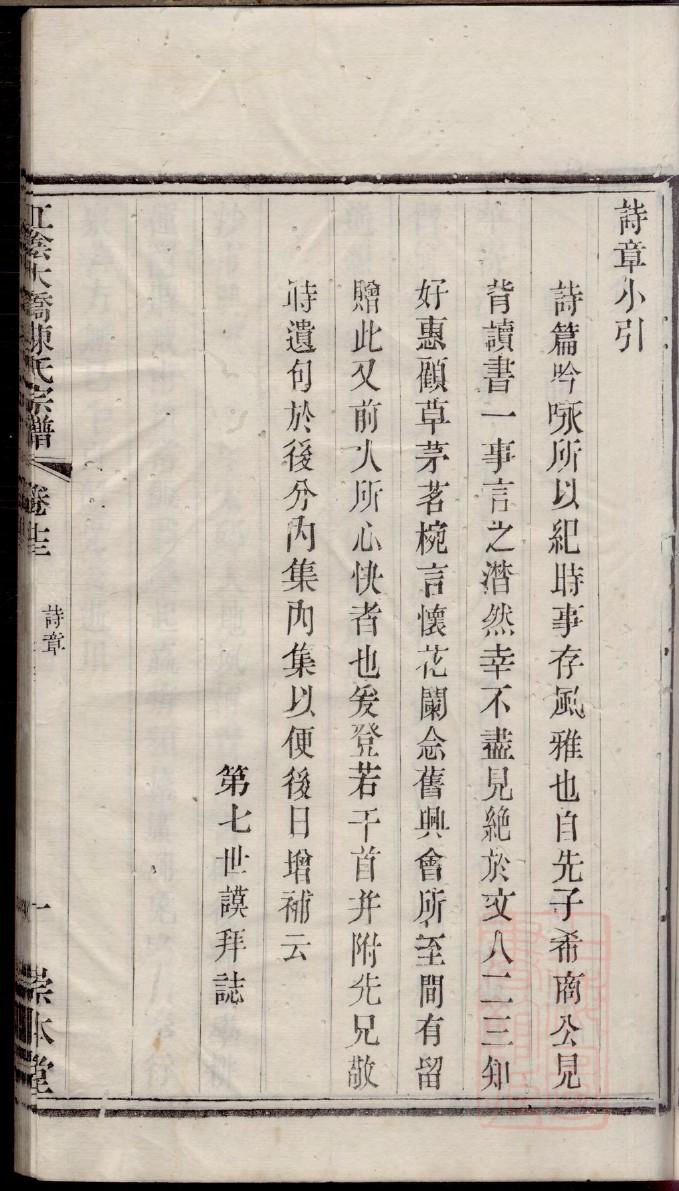 詩章小引
詩篇吟咏所以紀時事存風雅也自先子希商公見
背讀書一事言之潸然幸不盡見絶於文人二三知
好惠顧草茅茗椀言懷花闌念舊興會所至間有留
贈此又前人所心快者也爰登若干首并附先兄敬
時遺句於後分內集內集以便後日增補云
第七世謨拜誌
江陰大橋陳氏宗譜
卷廿三
詩章
一
崇本堂